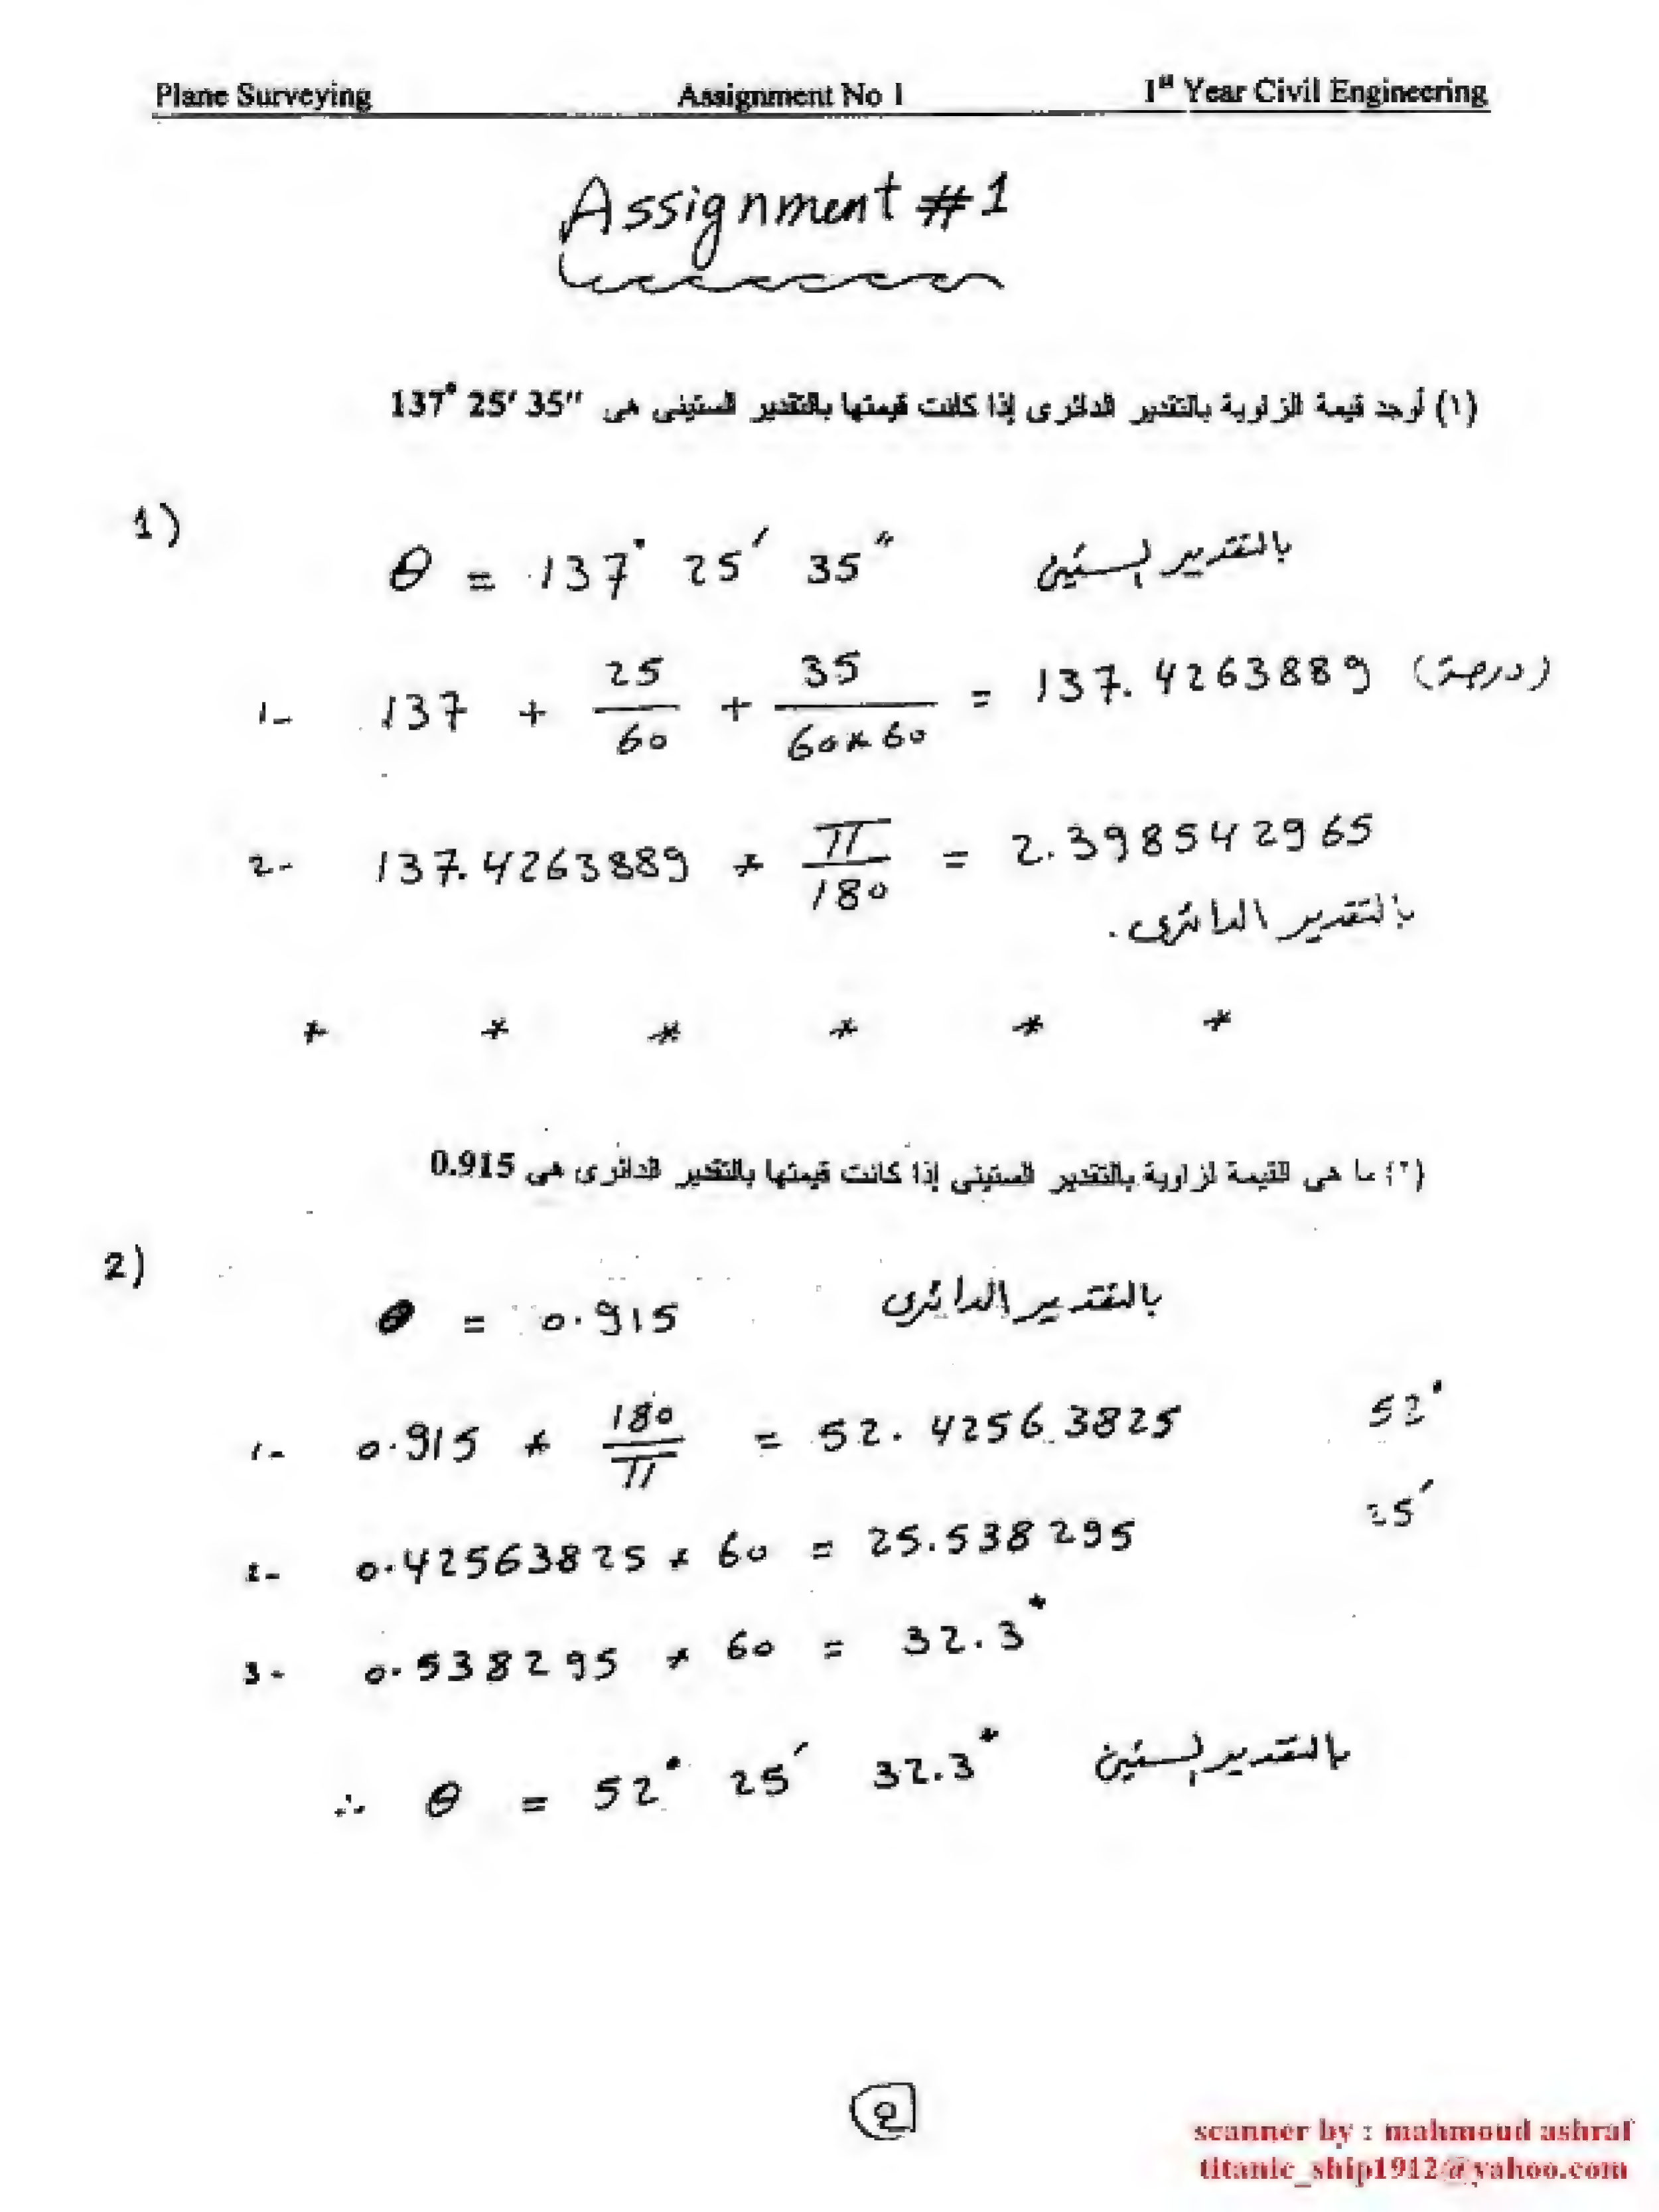 Plane Surveying Assignment No 1 1st Year Civil Engineering
Assignment #1
(١) أوجد قيمة الزاوية بالتقدير الدائرى إذا كانت قيمتها بالتقدير الستينى هى 137° 25′ 35″
1)
θ = 137° 25′ 35″ بالتقدير الستينى
1- 137 + 25/60 + 35/(60*60) = 137.4263889 (درجة)
2- 137.4263889 * π/180 = 2.398542965
بالتقدير الدائرى.
* * * * * *
(٢) ما هى القيمة لزاوية بالتقدير الستينى إذا كانت قيمتها بالتقدير الدائرى هى 0.915
2)
θ = 0.915 بالتقدير الدائرى
1- 0.915 * 180/π = 52.42563825 52°
2- 0.42563825 * 60 = 25.538295 25′
3- 0.538295 * 60 = 32.3″
∴ θ = 52° 25′ 32.3″ بالتقدير الستينى
2
scanner by : mahmoud ashraf
titanic_ship1912@yahoo.com